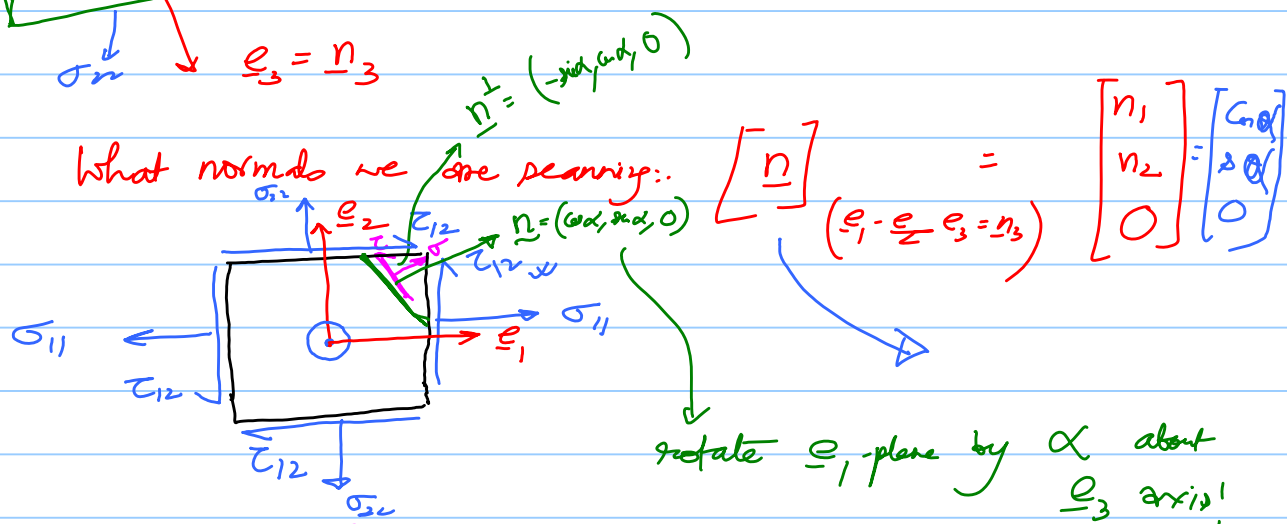 σ22
e3 = n3
n⊥ = (-sinα, cosα, 0)
What normals we are scanning:.
[n] (e1 - e2 e3 = n3) = [n1 n2 0] = [Cosα sα 0]
σ22
e2
τ12
τ
σ
n = (cosα, sinα, 0)
τ12
σ11
σ11
e1
τ12
τ12
σ22
rotate e1-plane by α about
e3 axis!